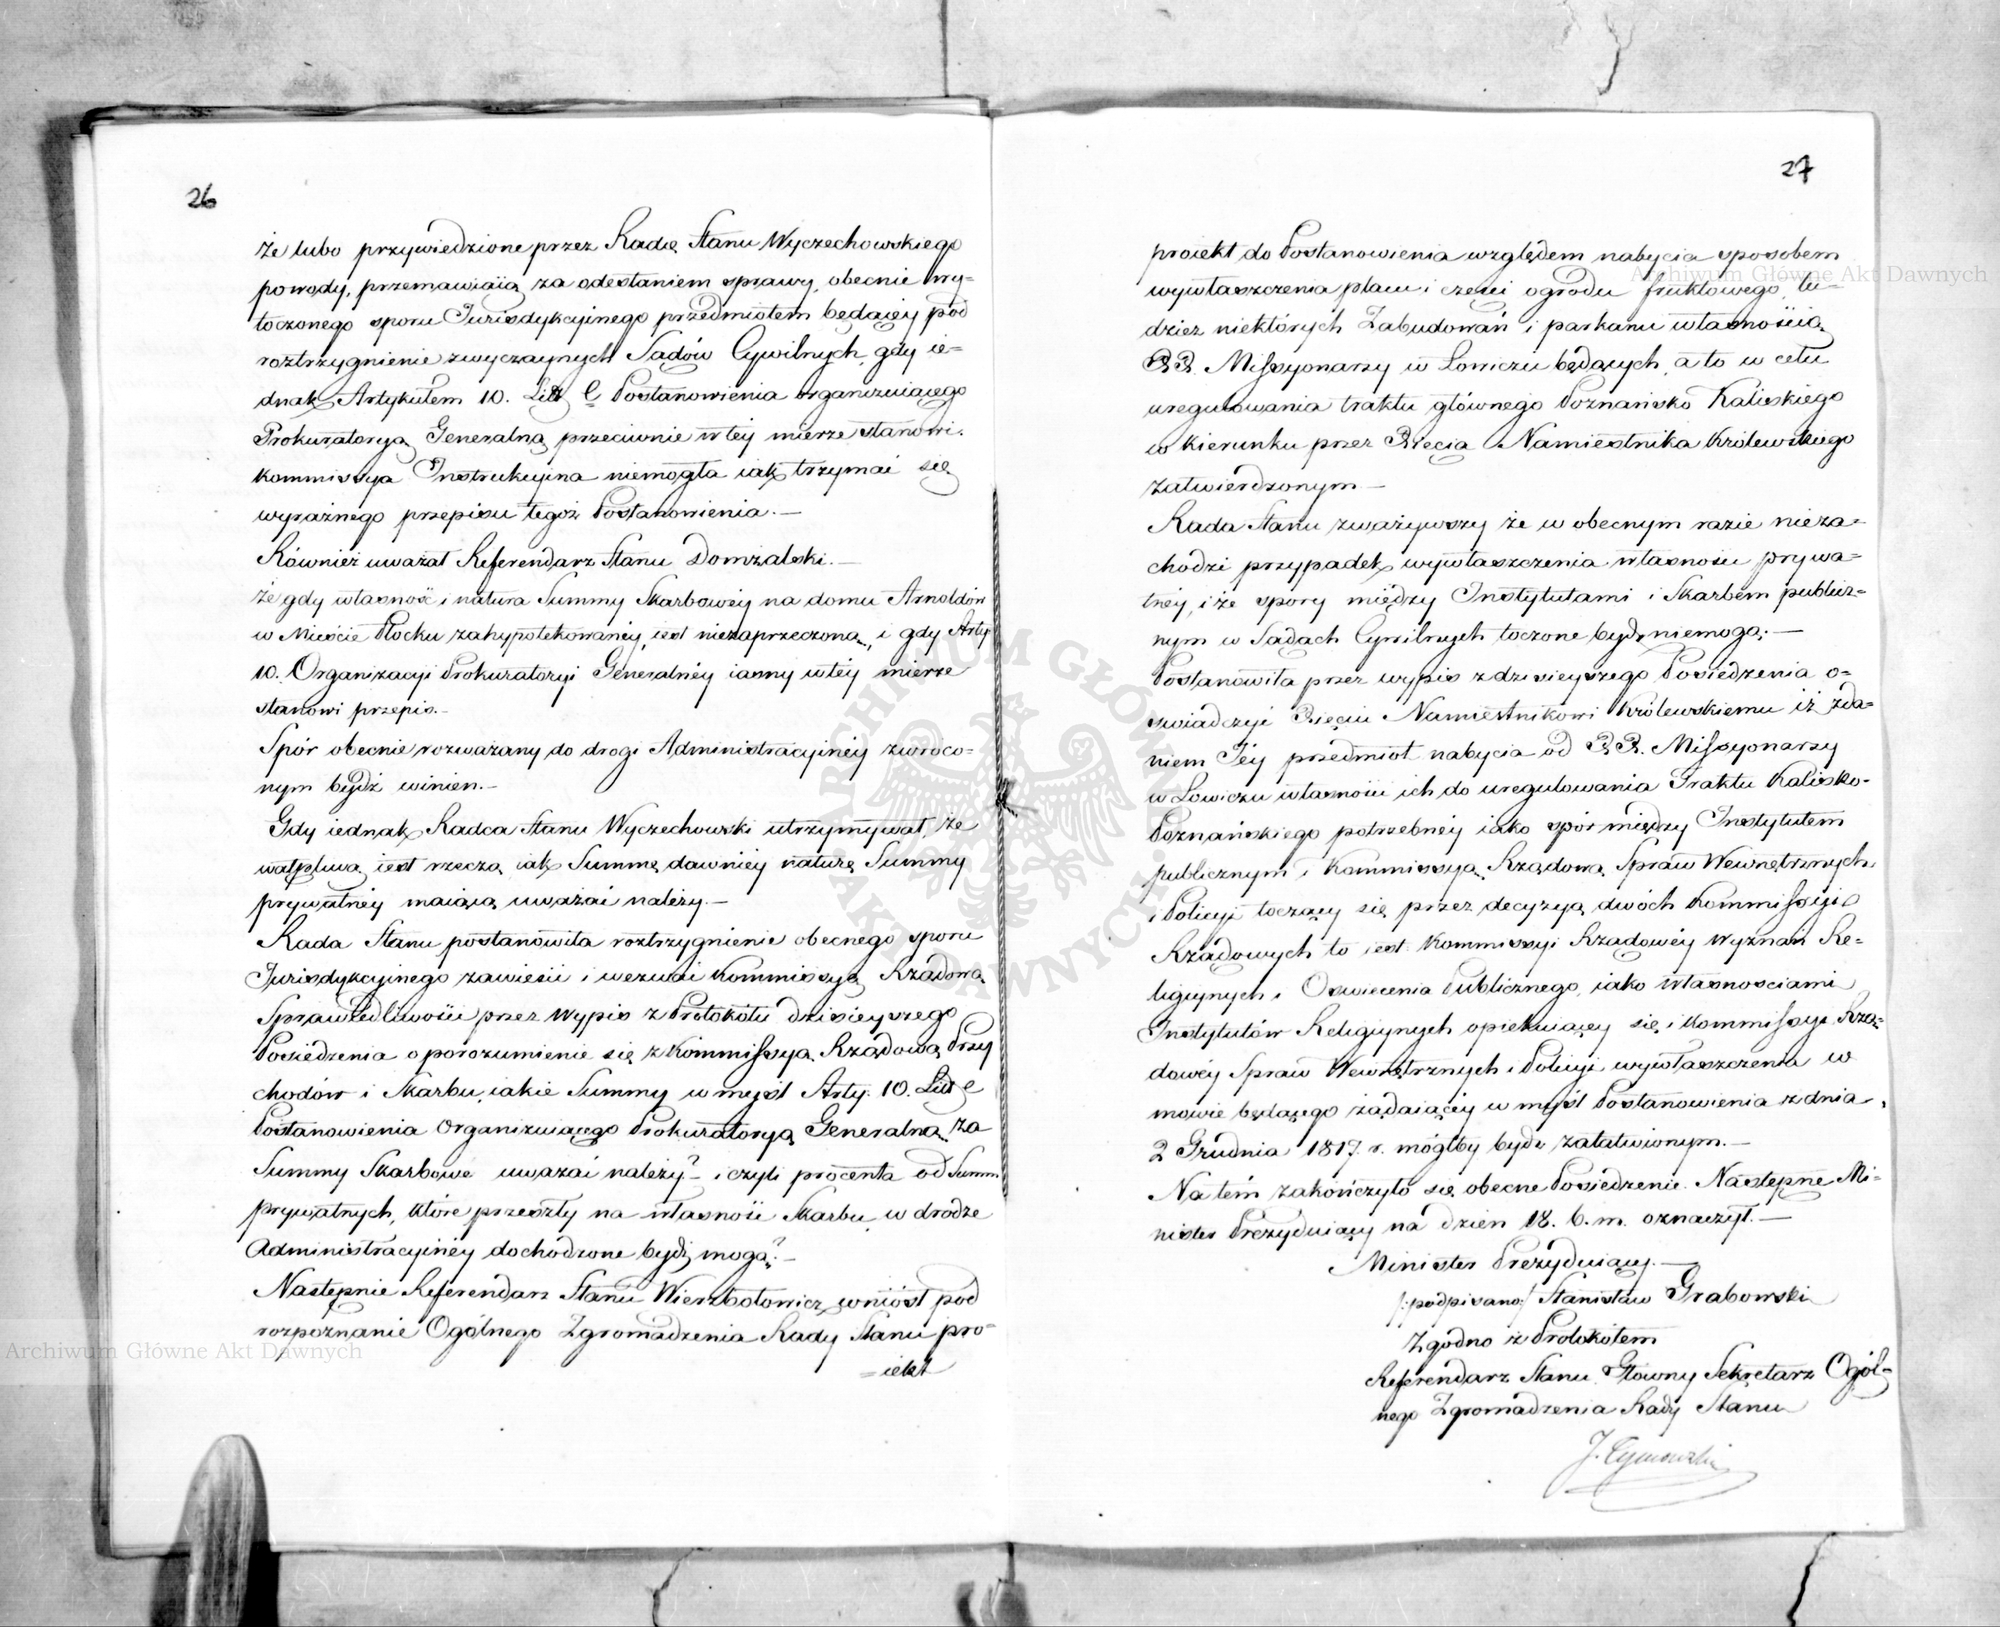 26
że lubo przywiedzione przez Radcę Stanu Wyczechowskiego
powody, przemawiaią za odesłaniem sprawy, obecnie wy-
toczonego sporu Jurisdykcyinego przedmiotem będącéy pod
roztrzygnienie zwyczaynych Sądów Cywilnych, gdy ie-
dnak Artykułem 10. Litt C Postanowienia organizuiącego
Prokuratoryą Generalną przeciwnie w téy mierze stanowi.
Kommissya Instrukcyina niemogła iak trzymać się
wyraźnego przepisu tegoż Postanowienia.—
Również uważał Referendarz Stanu Domżalski.—
że gdy własność i natura Summy Skarbowéy na domu Arnoldów
w Mieście Płocku zahypotekowanéy, iest niezaprzeczoną, i gdy Arty
10. Organizacyi Prokuratoryi Generalnéy iasny w téy mierze
stanowi przepis.—
Spór obecnie rozważany do drogi Administracyinéy zwróco-
nym bydź winien.—
Gdy iednak Radca Stanu Wyczechowski utrzymywał, że
wątpliwą iest rzeczą iak Summę dawniéy naturę Summy
prywatnéy maiącą uważać należy.—
Rada Stanu postanowiła roztrzygnienie obecnego sporu
Jurisdykcyinego zawiesić i wezwać Kommissyą Rządową
Sprawiedliwości przez wypis z Protokołu dzisieyszego
Posiedzenia o porozumienie się z Kommissyą Rządową Przy
chodów i Skarbu, iakie Summy w myśl Arty. 10. Litt C
Postanowienia Organizuiącego Prokuratoryą Generalną, za
Summy Skarbowe uważać należy?— i czyli procenta od Summ
prywatnych, które przeszły na własność Skarbu, w drodze
Administracyinéy dochodzone bydź mogą?—
Następnie Referendarz Stanu Wierzbołowicz wniósł pod
rozpoznanie Ogólnego Zgromadzenia Rady Stanu pro-
=iekt
27
proiekt do Postanowienia względem nabycia sposobem
wywłaszczenia placu i części ogrodu fruktowego, tu-
dzież niektórych Zabudowań i parkanu własnością
PP. Missyonarzy w Łowiczu będących, a to w celu
uregulowania traktu głównego Poznańsko Kaliskiego
w kierunku przez Xięcia Namiestnika Królewskiego
zatwierdzonym—
Rada Stanu zważywszy że w obecnym razie nieza-
chodzi przypadek wywłaszczenia własności prywa-
tnéy, i że spory między Instytutami i Skarbem publicz-
nym w Sądach Cywilnych toczone bydź niemogą;—
Postanowiła przez wypis z dzisieyszego Posiedzenia o-
świadczyć Xięciu Namiestnikowi Królewskiemu iż zda-
niem Jéy przedmiot nabycia od PP. Missyonarzy
w Łowiczu własności ich do uregulowania Traktu Kalisko-
Poznańskiego potrzebnéy iako spór między Instytutem
publicznym i Kommissyą Rządową Spraw Wewnętrznych
i Policyi toczący się przez decyzyą dwóch Kommissyi
Rządowych to iest Kommissyi Rządowéy Wyznań Re-
ligiynych i Oświecenia Publicznego, iako własnościami
Instytutów Religiynych opiekuiącéy się, i Kommissyi Rzą-
dowéy Spraw Wewnętrznych i Policyi wywłaszczenia w
mowie będącego żądaiącéy w myśl Postanowienia z dnia
2 Grudnia 1817. r. mógłby bydź załatwionym.—
Na tém zakończyło się obecne Posiedzenie. Następne Mi-
nister Prezyduiący na dzień 18. b. m. oznaczył.—
Minister Prezyduiący.—
/:podpisano:/ Stanisław Grabowski
Zgodno z Protokołem
Referendarz Stanu, Główny Sekretarz Ogól-
nego Zgromadzenia Rady Stanu
Archiwum Główne Akt Dawnych
Archiwum Główne Akt Dawnych
ARCHIWUM GŁÓWNE AKT DAWNYCH